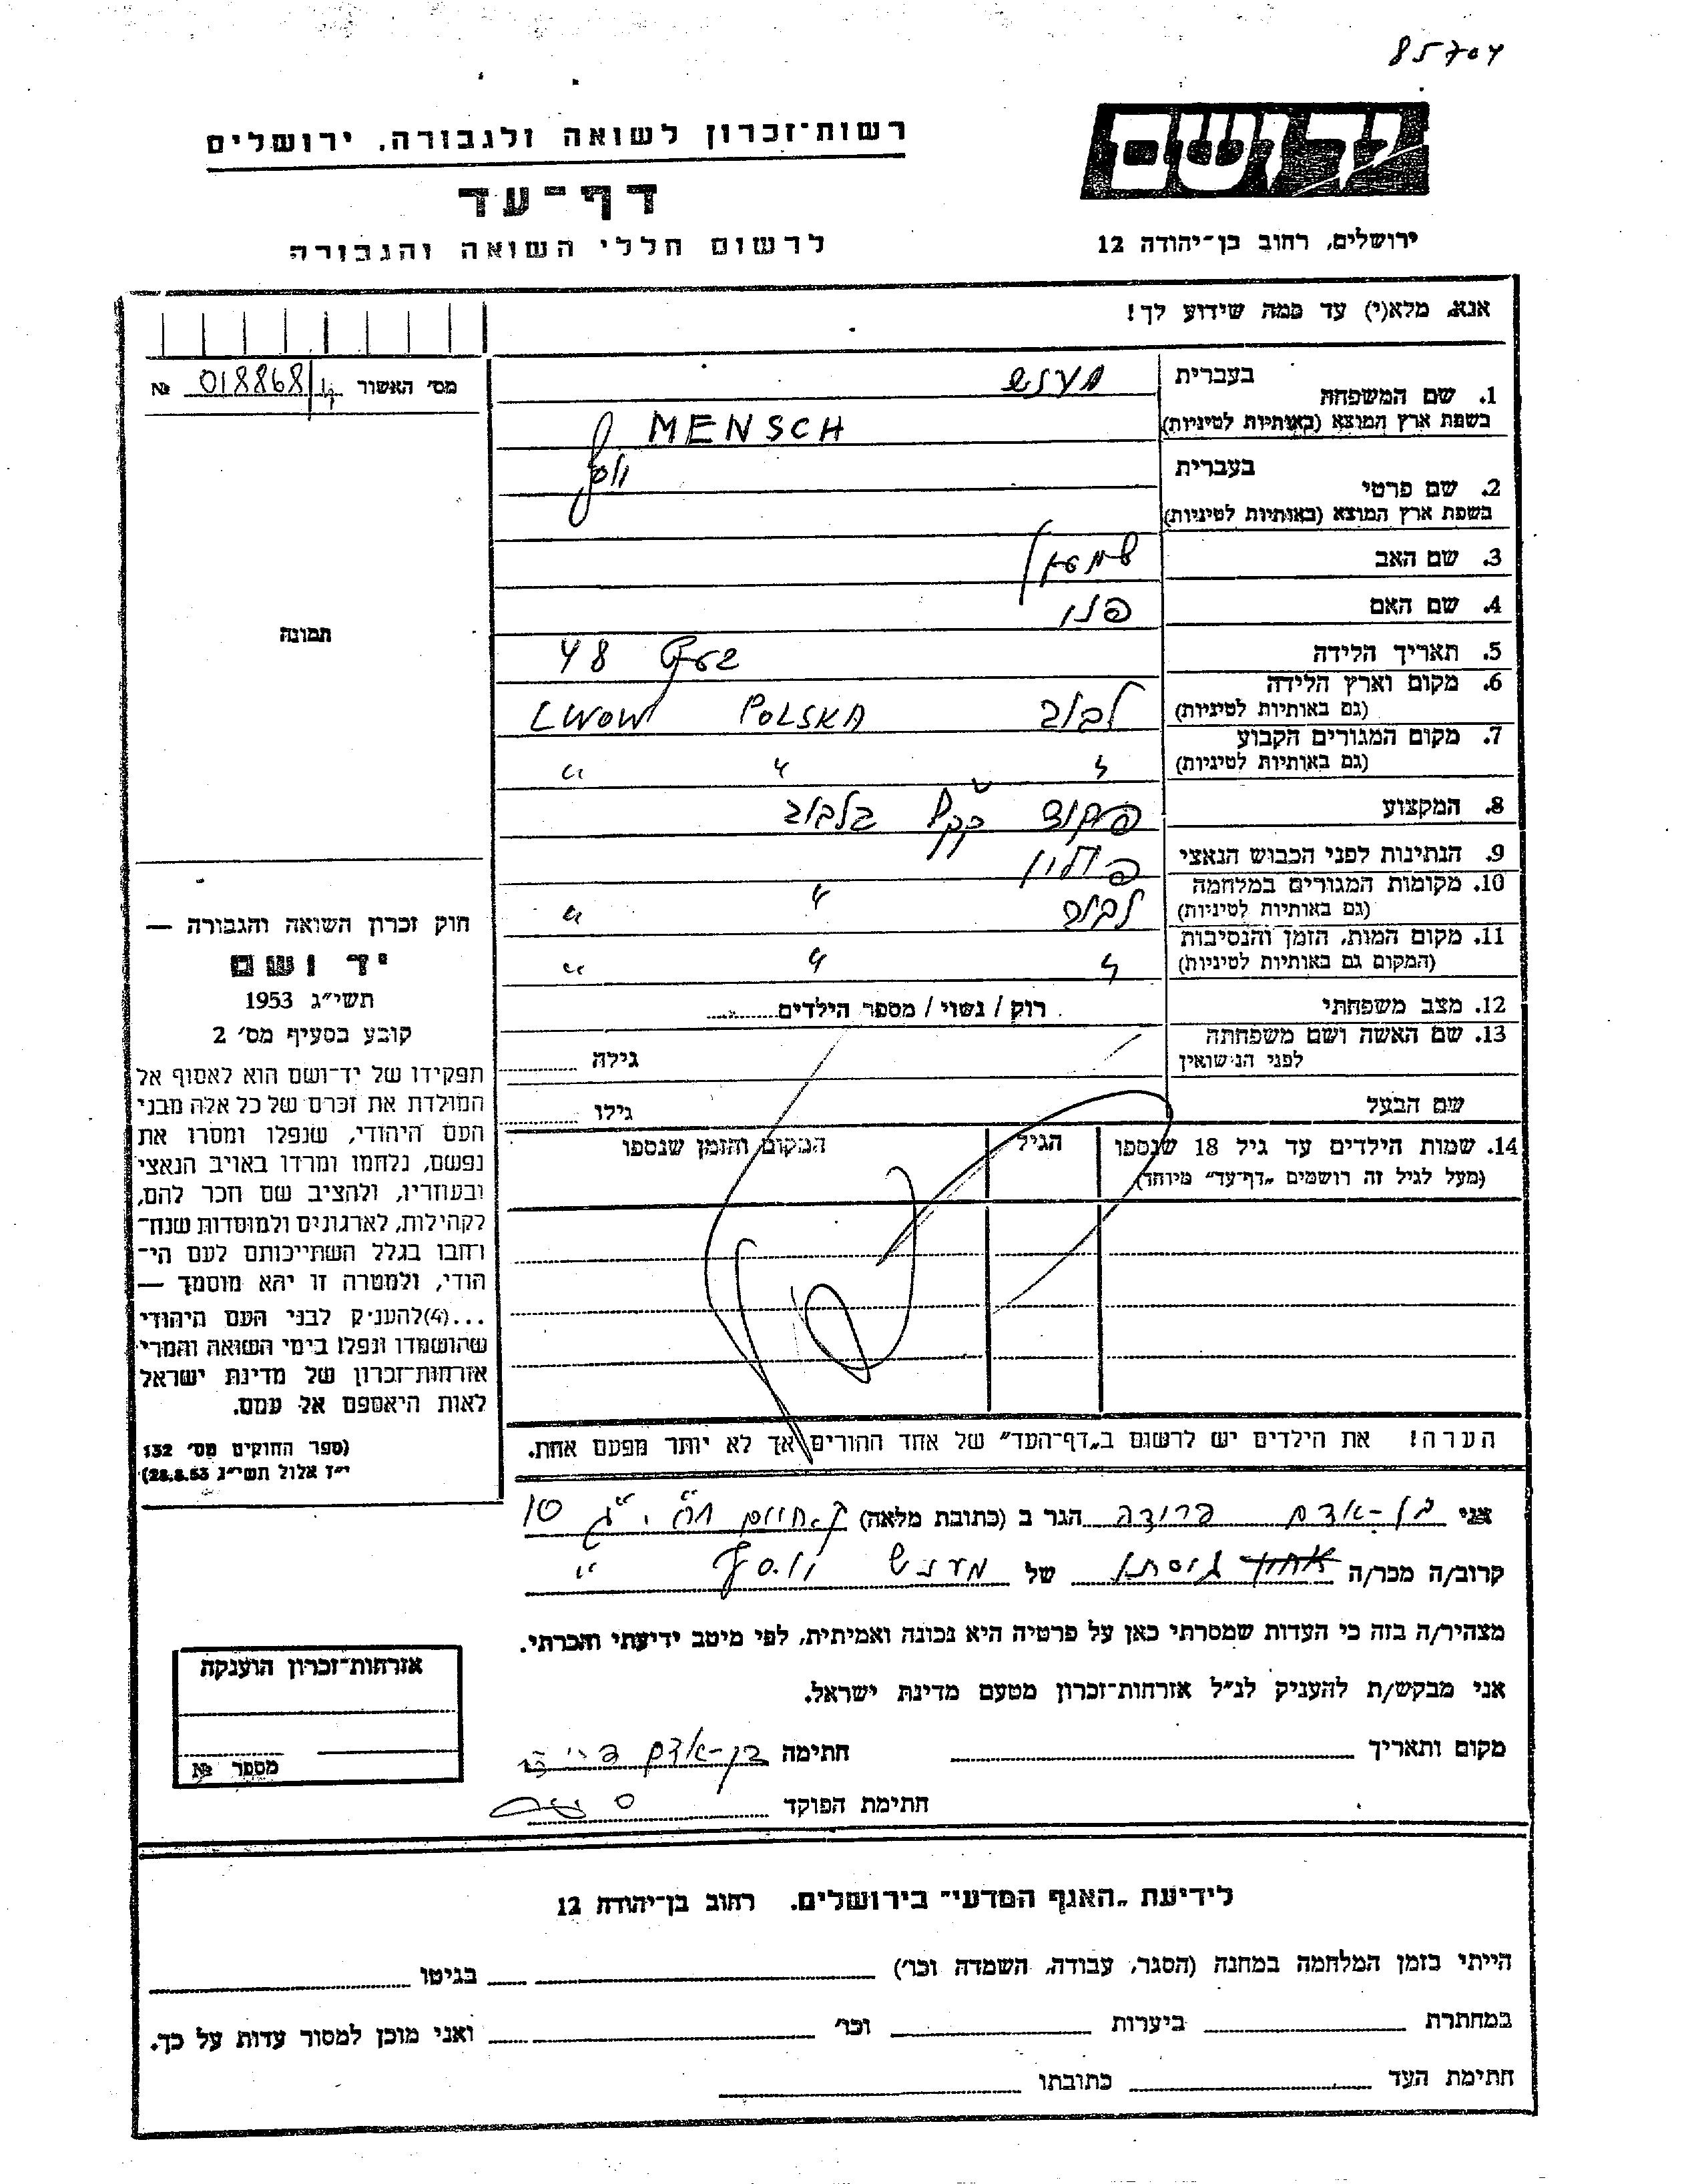 85704
יד ושם
רשות־זכרון לשואה ולגבורה, ירושלים
דף־עד
לרשום חללי השואה והגבורה
ירושלים, רחוב בן־יהודה 12
אנא, מלא(י) עד כמה שידוע לך!
מס׳ האשור 018868 №
1. שם המשפחה בעברית מענש
בשפת ארץ המוצא (באותיות לטיניות) MENSCH
2. שם פרטי בעברית
בשפת ארץ המוצא (באותיות לטיניות)
3. שם האב
4. שם האם
5. תאריך הלידה 48
6. מקום וארץ הלידה לבוב POLSKA LWOW
(גם באותיות לטיניות)
7. מקום המגורים הקבוע " " "
(גם באותיות לטיניות)
8. המקצוע בלבוב
9. הנתינות לפני הכבוש הנאצי
10. מקומות המגורים במלחמה לבוב " "
(גם באותיות לטיניות)
11. מקום המות, הזמן והנסיבות " " "
(המקום גם באותיות לטיניות)
12. מצב משפחתי רוק / נשוי / מספר הילדים
13. שם האשה ושם משפחתה
לפני הנישואין גילה
שם הבעל גילו
14. שמות הילדים עד גיל 18 שנספו הגיל המקום והזמן שנספו
(מעל לגיל זה רושמים „דף־עד" מיוחד)
הערה! את הילדים יש לרשום ב„דף־העד" של אחד ההורים אך לא יותר מפעם אחת.
תמונה
חוק זכרון השואה והגבורה —
יד ושם
תשי״ג 1953
קובע בסעיף מס׳ 2
תפקידו של יד־ושם הוא לאסוף אל
המולדת את זכרם של כל אלה מבני
העם היהודי, שנפלו ומסרו את
נפשם, נלחמו ומרדו באויב הנאצי
ובעוזריו, ולהציב שם וזכר להם,
לקהילות, לארגונים ולמוסדות שנח־
רבו בגלל השתייכותם לעם הי־
הודי, ולמטרה זו יהא מוסמך —
...(4)להעניק לבני העם היהודי
שהושמדו ונפלו בימי השואה והמרי
אזרחות־זכרון של מדינת ישראל
לאות היאספם אל עמם.
(ספר החוקים מס׳ 132
י״ז אלול תשי״ג 28.8.53)
אני בן-אדם הגר ב (כתובת מלאה) 10
קרוב/ה מכר/ה גיסתו של מענש "
מצהיר/ה בזה כי העדות שמסרתי כאן על פרטיה היא נכונה ואמיתית, לפי מיטב ידיעתי והכרתי.
אני מבקש/ת להעניק לנ״ל אזרחות־זכרון מטעם מדינת ישראל.
מקום ותאריך חתימה בן-אדם
חתימת הפוקד
אזרחות־זכרון הוענקה
מספר №
לידיעת „האגף המדעי" בירושלים. רחוב בן־יהודה 12
הייתי בזמן המלחמה במחנה (הסגר, עבודה, השמדה וכו׳) בגיטו
במחתרת ביערות וכו׳ ואני מוכן למסור עדות על כך.
חתימת העד כתובתו